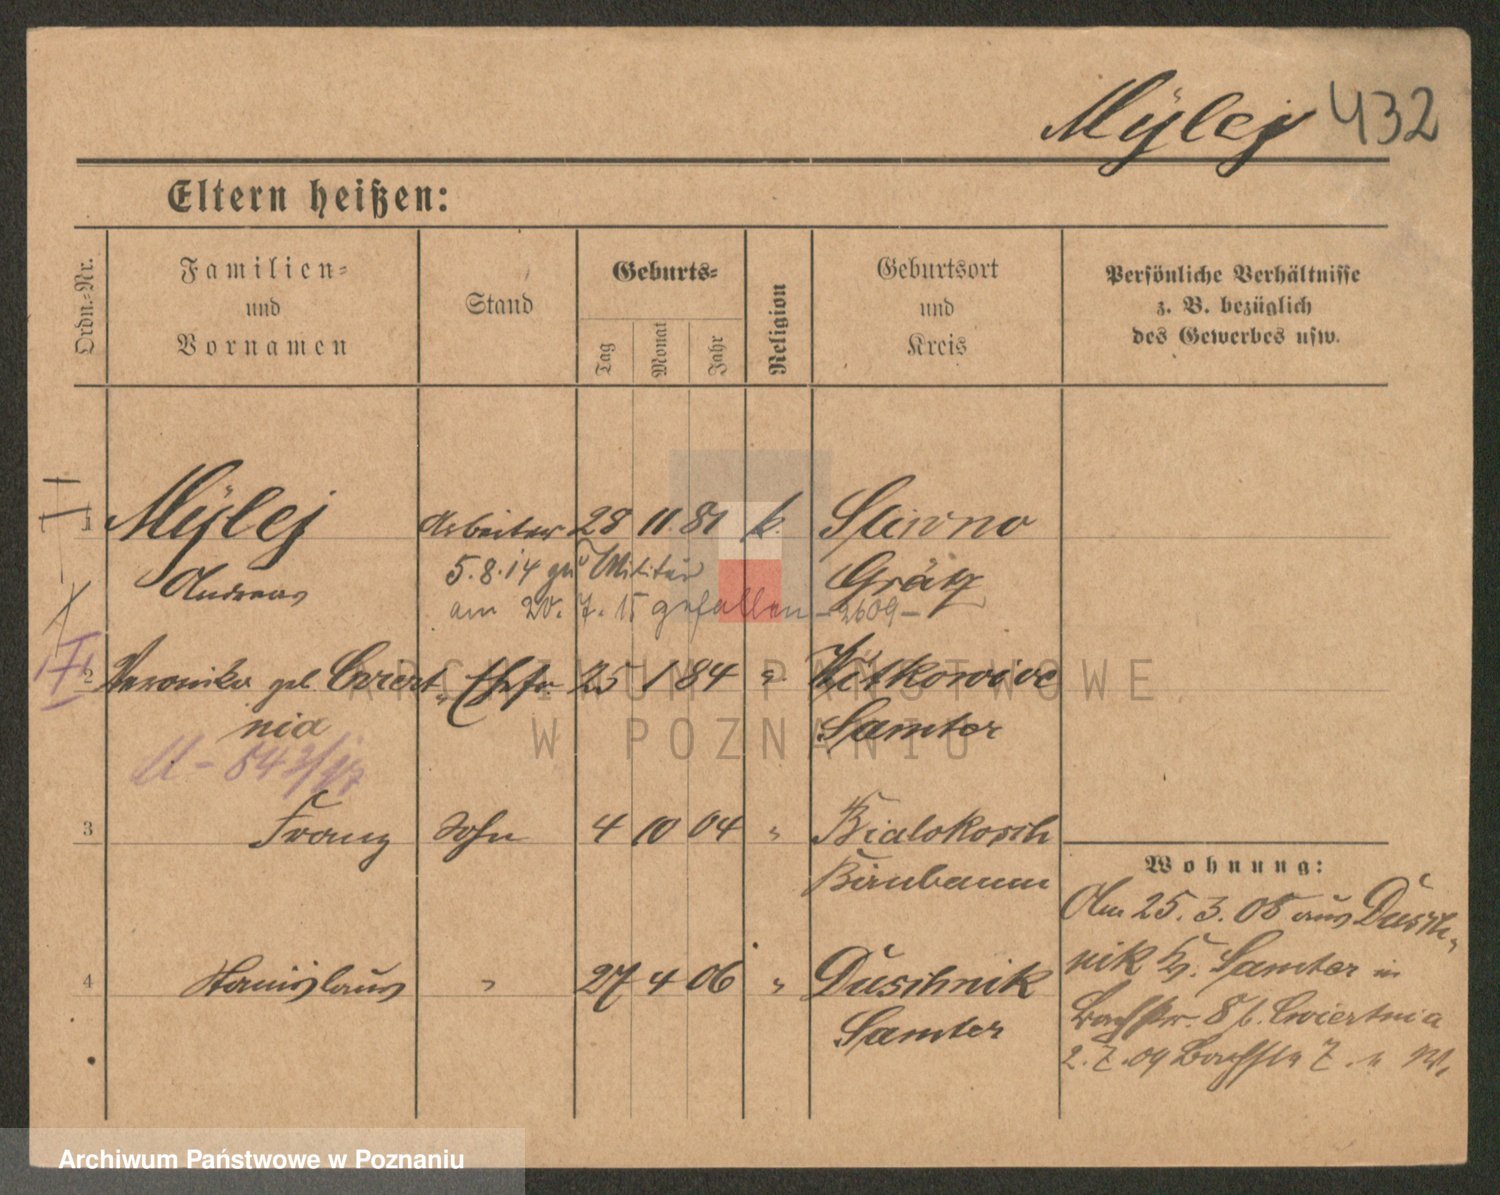 Mÿlej 432
Eltern heißen:
Ordn.-Nr.
Familien-
und
Vornamen
Stand
Geburts-
Tag
Monat
Jahr
Religion
Geburtsort
und
Kreis
Persönliche Verhältnisse
z. B. bezüglich
des Gewerbes usw.
1 Mÿlej Arbeiter 28 11. 81 k. Sliwno
Andreas 5.8.14 zu Militär Grätz
am 20. 7. 15 gefallen -2609-
2 Veronika geb. Cwiert- Ehefr. 25 1 84 " Witkowice
nia Samter
3 Franz Sohn 4 10 04 " Bialokosch
Birnbaum
Wohnung:
Am 25.3.08 aus Dusch-
nik Kr. Samter in
8 b. Cwiertnia
2.7.09 7.
4 Stanislaus " 27 4 06 " Duschnik
Samter
ARCHIWUM PAŃSTWOWE
W POZNANIU
Archiwum Państwowe w Poznaniu